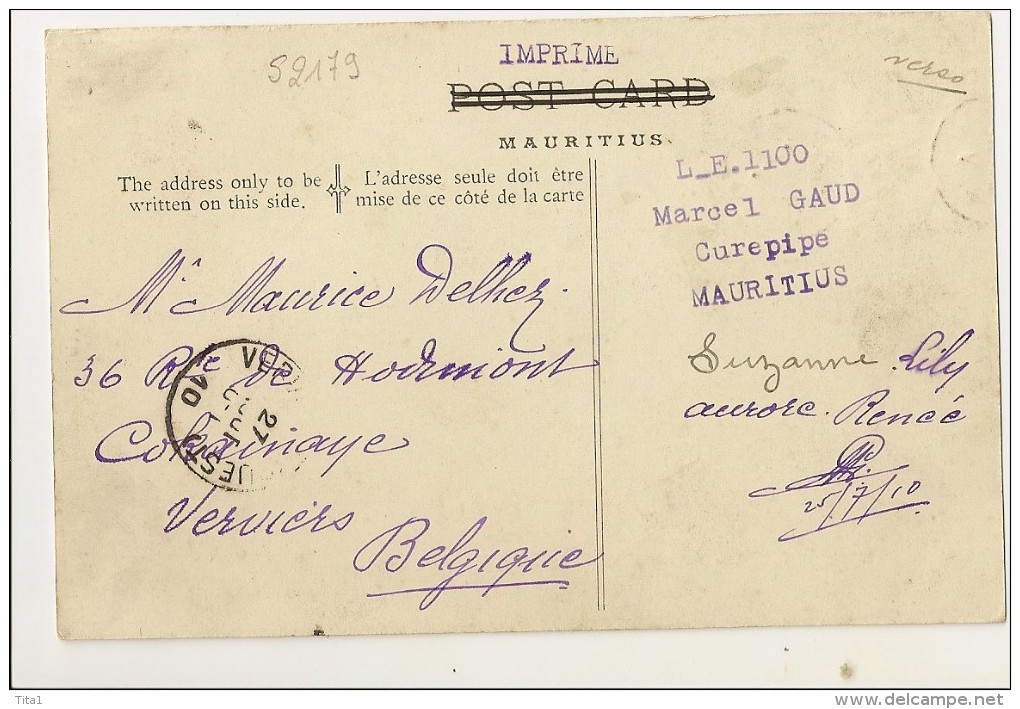 S2179
IMPRIME
verso
POST CARD
MAURITIUS.
The address only to be
written on this side.
L'adresse seule doit être
mise de ce côté de la carte
L_E.1100
Marcel GAUD
Curepipe
MAURITIUS
Mr Maurice Delhez.
36 Rte de Hodimont
Verviers
Belgique
Suzanne. Lily
aurore. Renée
25/7/10
27
10
Tita1
www.delcampe.net